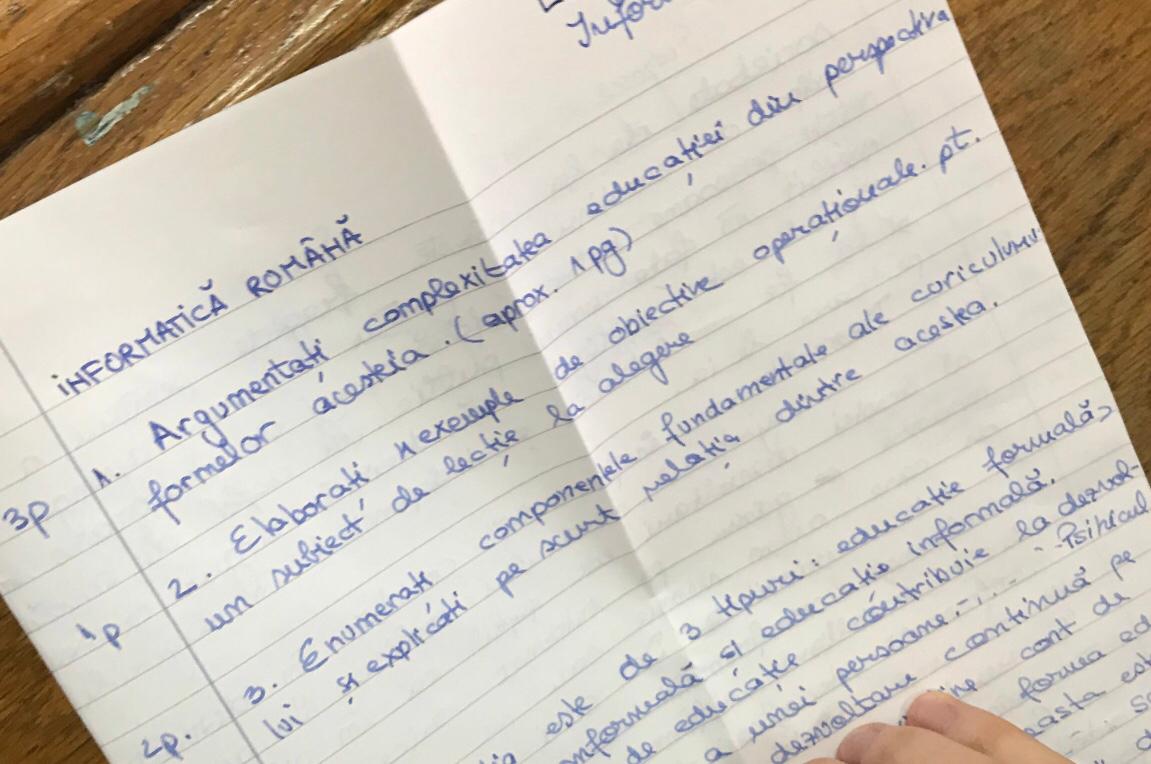 Infor
INFORMATICĂ ROMÂNĂ
3p 1. Argumentați complexitatea educației din perspectiva
formelor acesteia. (aprox. 1 pg)
1p 2. Elaborați exemple de obiective operaționale. pt.
un subiect de lecție la alegere
2p. 3. Enumerați componentele fundamentale ale curiculumu
lui și explicați pe scurt relația dintre acestea.
este de 3 tipuri: educație formală,
nformală și educație informală.
de educație contribuie la dezvol-
a unei persoane. Psihicul
dezvoltare continuă pe
cont de
forma ed
asta est